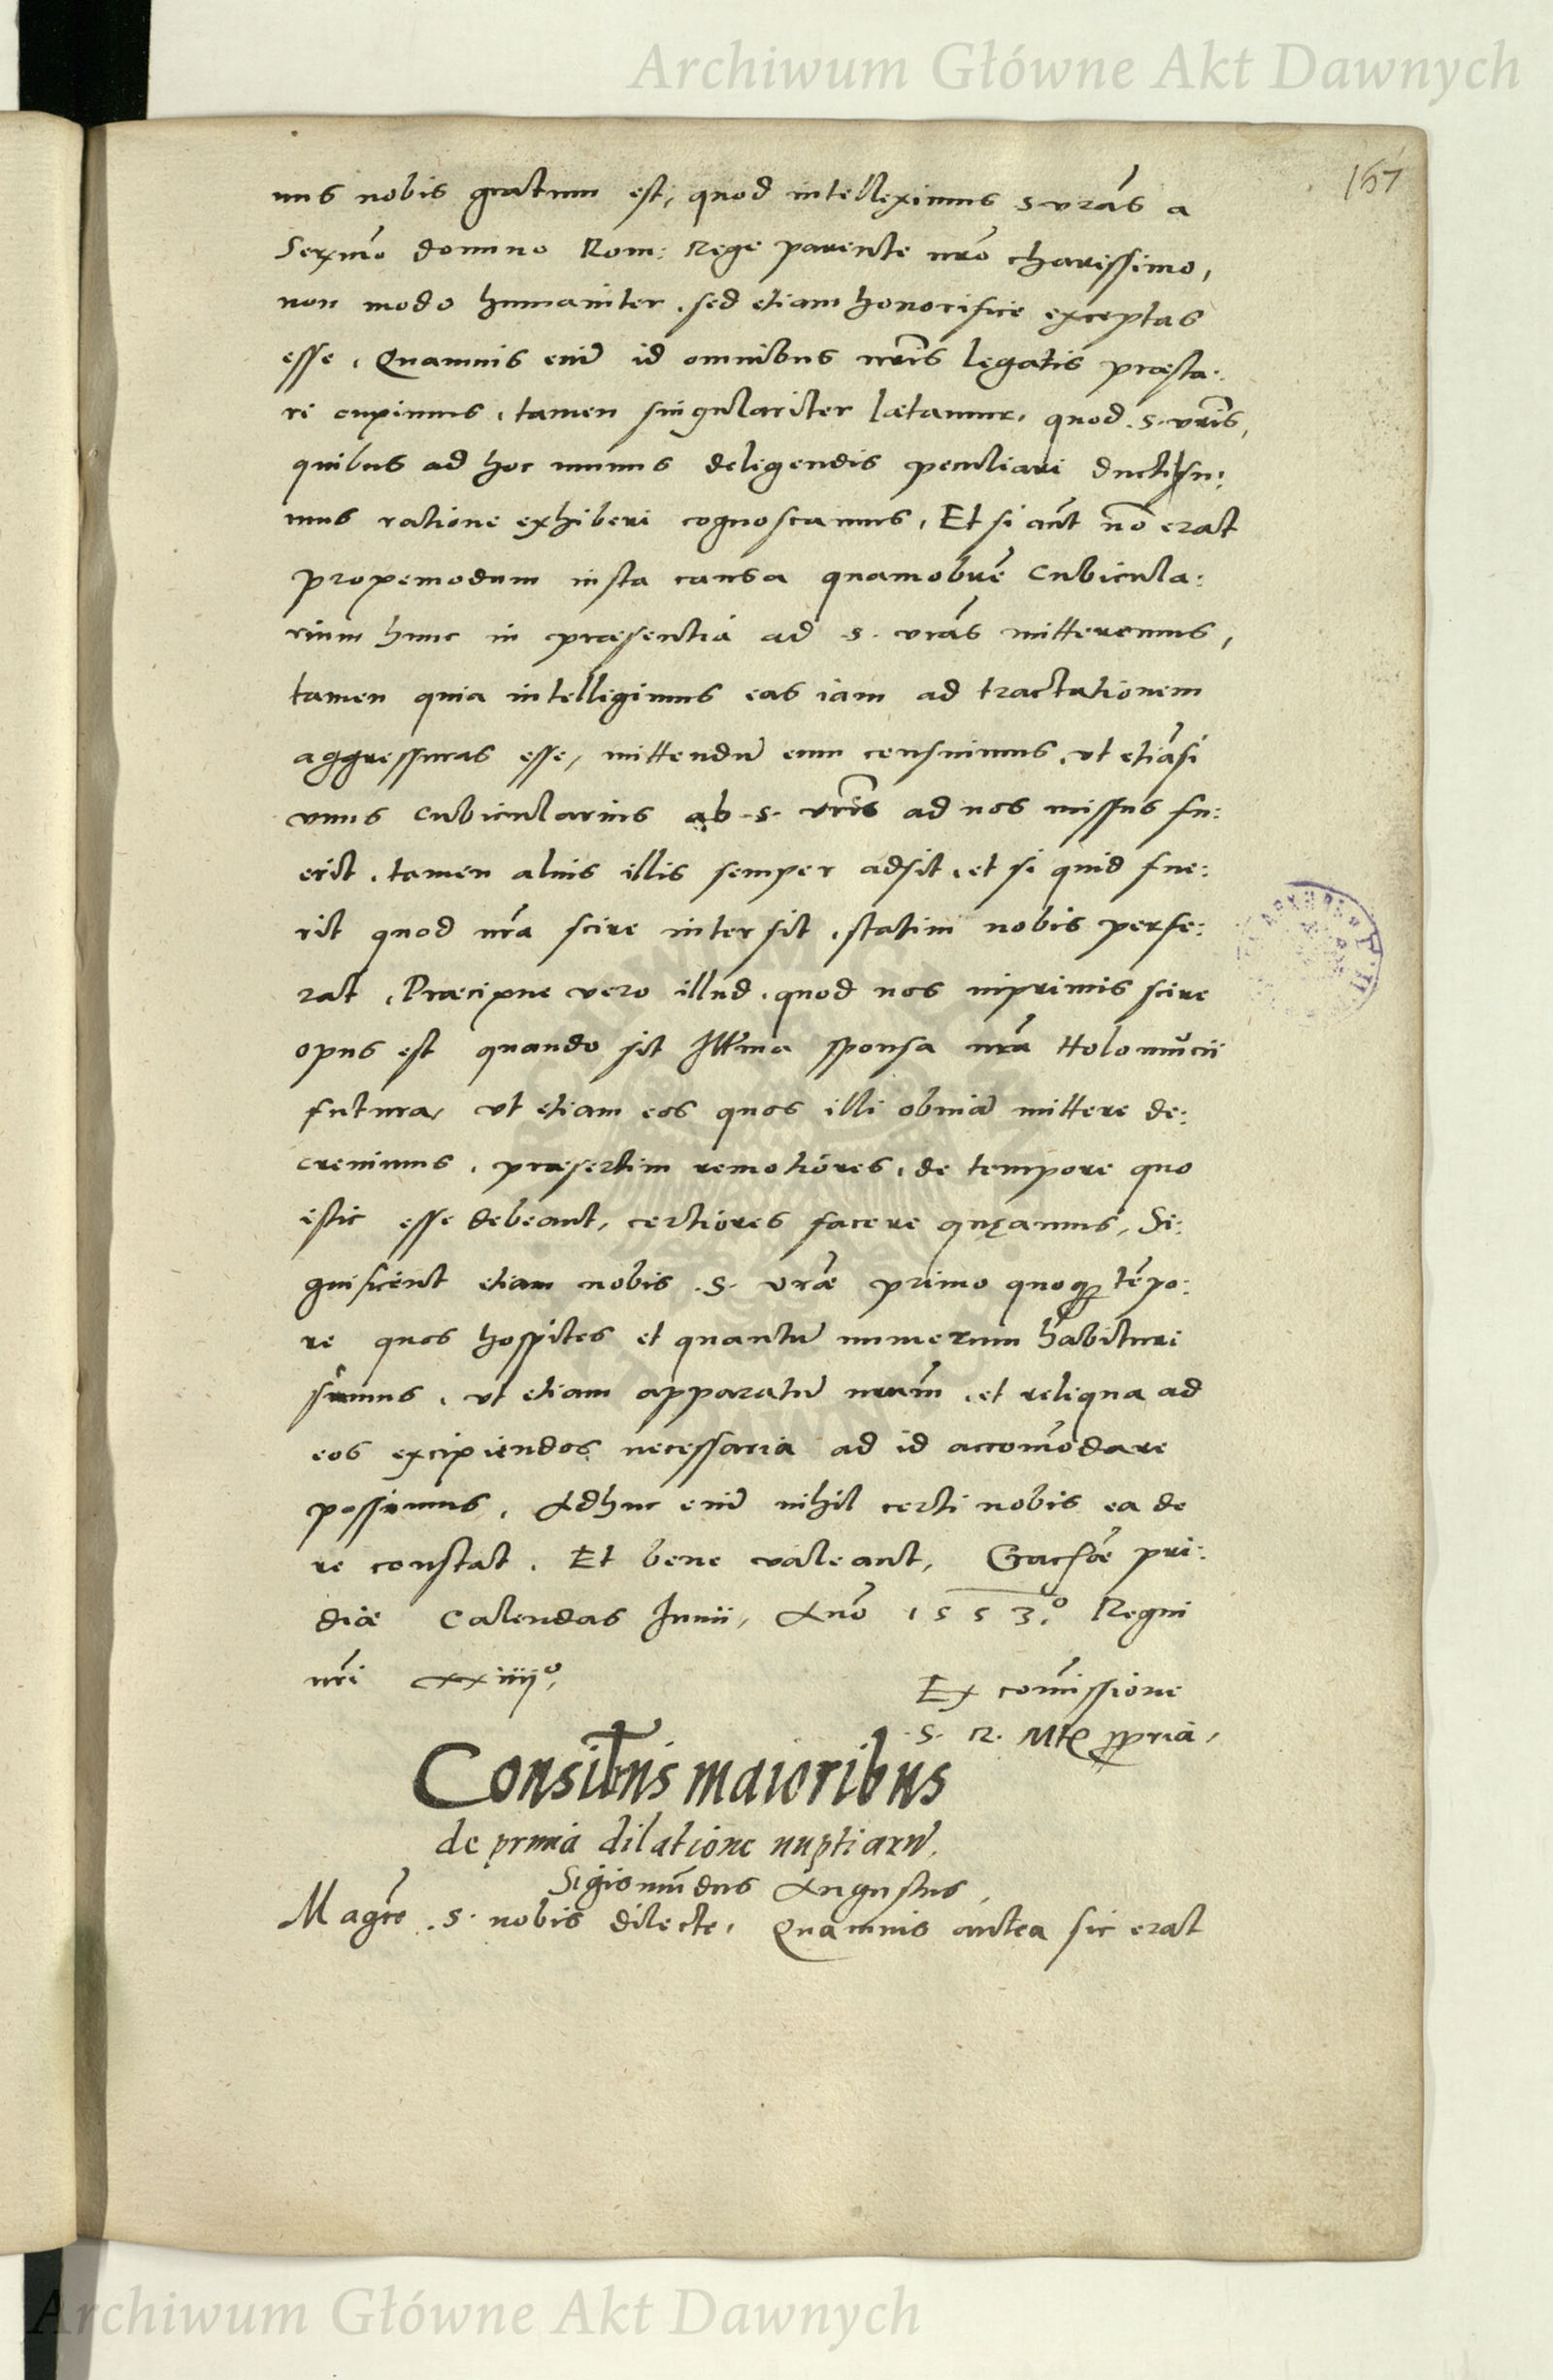 Archiwum Główne Akt Dawnych
167
mus nobis gratum est, quod intelleximus s vrãs a
Serxmõ domino Rom: Rege parente nrõ charissimo,
non modo humaniter, sed etiam honorifice exceptas
esse, Quamuis enim̃ id omnibus nrĩs legatis præsta:
ri cupimus, tamen singulariter lætamur, quod .s. vrĩs,
quibus ad hoc munus deligendis peculiari ducti su:
mus ratione exhiberi cognoscamus, Et si aũt nõ erat
propemodum iusta causa quamobrẽ cubicula:
rium hunc in præsentia ad .s. vrãs mitteremus,
tamen quia intelligimus eas iam ad tractationem
aggressuras esse, mittendũ eum censuimus, vt etiãsi
vnus cubicularius ab .s. vrĩs ad nos missus fu:
erit, tamen alius illis semper adsit, et si quid fue:
rit quod nrã scire intersit, statim nobis perfe:
rat, Præcipue vero illud, quod nos inprimis scire
opus est quando sit Illma sponsa nrã Holomucii
futura, vt etiam eos quos illi obuiã mittere de:
creuimus, præsertim remotiores, de tempore quo
istic esse debeant, certiores facere queamus, Si:
gnificent etiam nobis .s. vræ primo quoq tẽpo:
re quos hospites et quantũ numerum habituri
simus, vt etiam apparatũ nrum̃, et reliqua ad
eos excipiendos necessaria ad id accomõdare
possimus, Adhuc enim̃ nihil certi nobis ea de
re constat. Et bene valeant, pri:
diæ Calendas Junii, Anõ 1553.º Regni
nrĩ xxiiijº,
Ex comĩssione
.S. R. Mtẽ ppria,
Consilrĩis maioribus
de prima dilatione nuptiarũ.
Sigismũdus Augustus,
Magcẽ .s. nobis dilecte, Quamuis antea sic erat
Archiwum Główne Akt Dawnych